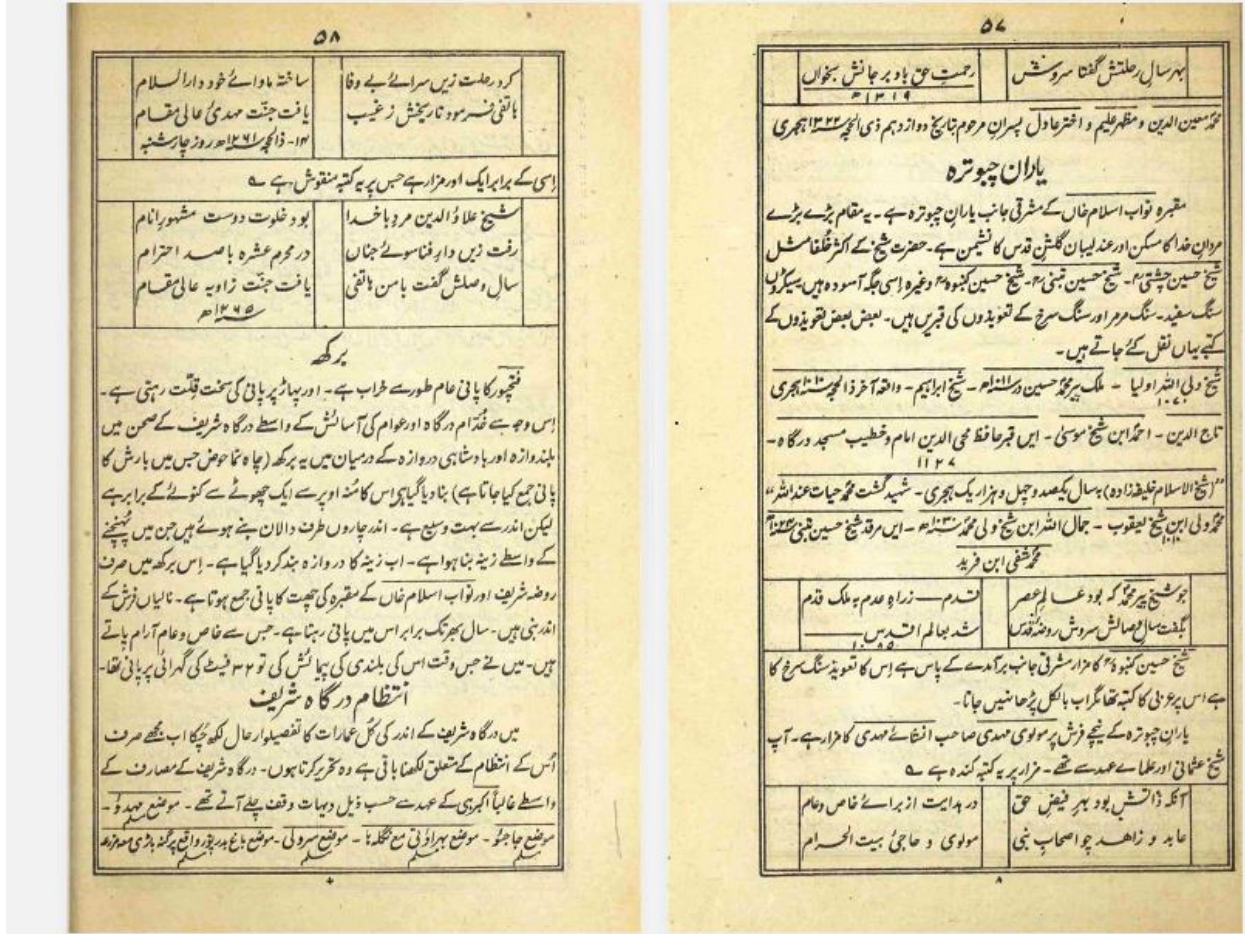 ۵۷
بہر سالِ رحلتش گفتا سروش
رحمتِ حق باد بر جانش بخواں
۱۳۱۹ھ
محمدؐ معین الدین و مظہر علیم و اختر عادل پسرانِ مرحوم بتاریخ دوازدہم ذی الحجہ ۱۳۲۲ ہجری
یاران چبوترہ
مقبرہ نواب اسلام خاں کے مشرقی جانب یارانِ چبوترہ ہے۔ یہ مقام بڑے بڑے
مردانِ خدا کا مسکن اور عندلیبان گلشنِ قدس کا نشیمن ہے۔ حضرت شیخ کے اکثر خُلفا مثل
شیخ حسین چشتیؒ۔ شیخ حسین تبنیؒ۔ شیخ حسین کنبوہؒ وغیرہ اِسی جگہ آسودہ ہیں سیکڑوں
سنگ سفید۔ سنگ مرمر اور سنگ سرخ کے تعویذوں کی قبریں ہیں۔ بعض بعض تعویذوں کے
کتبے یہاں نقل کئے جاتے ہیں۔
شیخ ولی اللہ اولیا ۔ ملک پیر محمدؐ حسین در ۱۰۱۱ھ۔ شیخ ابراہیم۔ واقعہ آخر ذالحجہ ۱۰۱۰ ہجری
۱۰۷۰
تاج الدین۔ احمدؐ ابن شیخ موسیٰ۔ ایں قبر حافظ محی الدین امام و خطیب مسجد درگاہ۔
۱۱۲۷
"(شیخ الاسلام خلیفہ زادہ) بہ سال یکصد و چہل و ہزار یک ہجری۔ شہید گشت محمدؐ حیات عند اللہ"
محمدؐ ولی ابن شیخ یعقوب ۔ جمال اللہ ابن شیخ ولی محمدؐ ۱۰۳۰ھ۔ ایں مرقد شیخ حسین تبنی
۱۰۱۰
محمدؐ شفی ابن فرید
چو شیخ پیر محمدؐ کہ بود عالمِ عصر
قدم — زراہِ عدم بہ ملک قدم
بگفت سالِ وصالش سروش روضۂ قدس
شد بعالم اقدس
شیخ حسین کنبوہؒ کا مزار مشرقی جانب برآمدے کے پاس ہے اِس کا تعویذ سنگ سرخ کا
ہے اس پر عربی کا کتبہ تھا مگر اب بالکل پڑھا نہیں جاتا۔
یارانِ چبوترہ کے نیچے فرش پر مولوی مہدی صاحب انشائے مہدی کا مزار ہے۔ آپ
شیخ عثمانی اور علمائے عہد سے تھے۔ مزار پر یہ کتبہ کندہ ہے ؎
آنکہ ذاتش بود بہرِ فیض حق
در ہدایت از برائے خاص و عام
عابد و زاہد چو اصحابِ نبی
مولوی و حاجیِٔ بیت الحرام
۸
۵۸
کرد رحلت زیں سرائے بے وفا
ساختہ ماوائے خود دار السلام
ہاتفی فرمود تاریخش ز غیب
یافت جنّت مہدیِٔ عالی مقام
۱۴۔ ذالحجہ ۱۲۶۱ھ روز چارشنبہ
اِسی کے برابر ایک اور مزار ہے جس پر یہ کتبہ منقوش ہے ؎
شیخ علاؤ الدین مردِ باخدا
بود خلوت دوست مشہورِ انام
رفت زیں دارِ فنا سوئے جناں
در محرم عشرہ با صد احترام
سالِ وصلش گفت با من ہاتفی
یافت جنّت زاویہ عالی مقام
۱۲۶۵ھ
برکھ
فتحپور کا پانی عام طور سے خراب ہے۔ اور پہاڑ پر پانی کی سخت قلّت رہتی ہے۔
اِس وجہ سے خُدّام درگاہ اور عوام کی آسائش کے واسطے درگاہ شریف کے صحن میں
بلند وازہ اور بادشاہی دروازہ کے درمیان میں یہ برکھ (چاہ نما حوض جس میں بارش کا
پانی جمع کیا جاتا ہے) بنا دیا گیا ہی اس کا مُنہ اوپر سے ایک چھوٹے سے کنوئے کے برابر ہے
لیکن اندر سے بہت وسیع ہے۔ اندر چاروں طرف دالان بنے ہوئے ہیں جن میں پُہنچنے
کے واسطے زینہ بنا ہوا ہے۔ اب زینہ کا دروازہ بند کر دیا گیا ہے۔ اِس برکھ میں صرف
روضہ شریف اور نواب اسلام خاں کے مقبرہ کی چھت کا پانی جمع ہوتا ہے۔ نالیاں فرش کے
اندر بنی ہیں۔ سال بھر تک برابر اس میں پانی رہتا ہے۔ جس سے خاص و عام آرام پاتے
ہیں۔ میں نے جس وقت اس کی بلندی کی پیمائش کی تو ۳۲ فیٹ کی گہرائی پر پانی تھا۔
انتظام درگاہ شریف
میں درگاہ شریف کے اندر کی کُل عمارات کا تفصیلوار حال لکھ چُکا اب مجھے صرف
اُس کے انتظام کے متعلق لکھنا باقی ہے وہ تحریر کرتا ہوں۔ درگاہ شریف کے مصارف کے
واسطے غالباً اکبر ہی کے عہد سے حسب ذیل دیہات وقف چلے آتے تھے۔ موضع
موضع جاجئو۔ موضع مع نگلہ ہا۔ موضع سرولی۔ موضع باغ بدر پور واقع پرگنہ باڑی